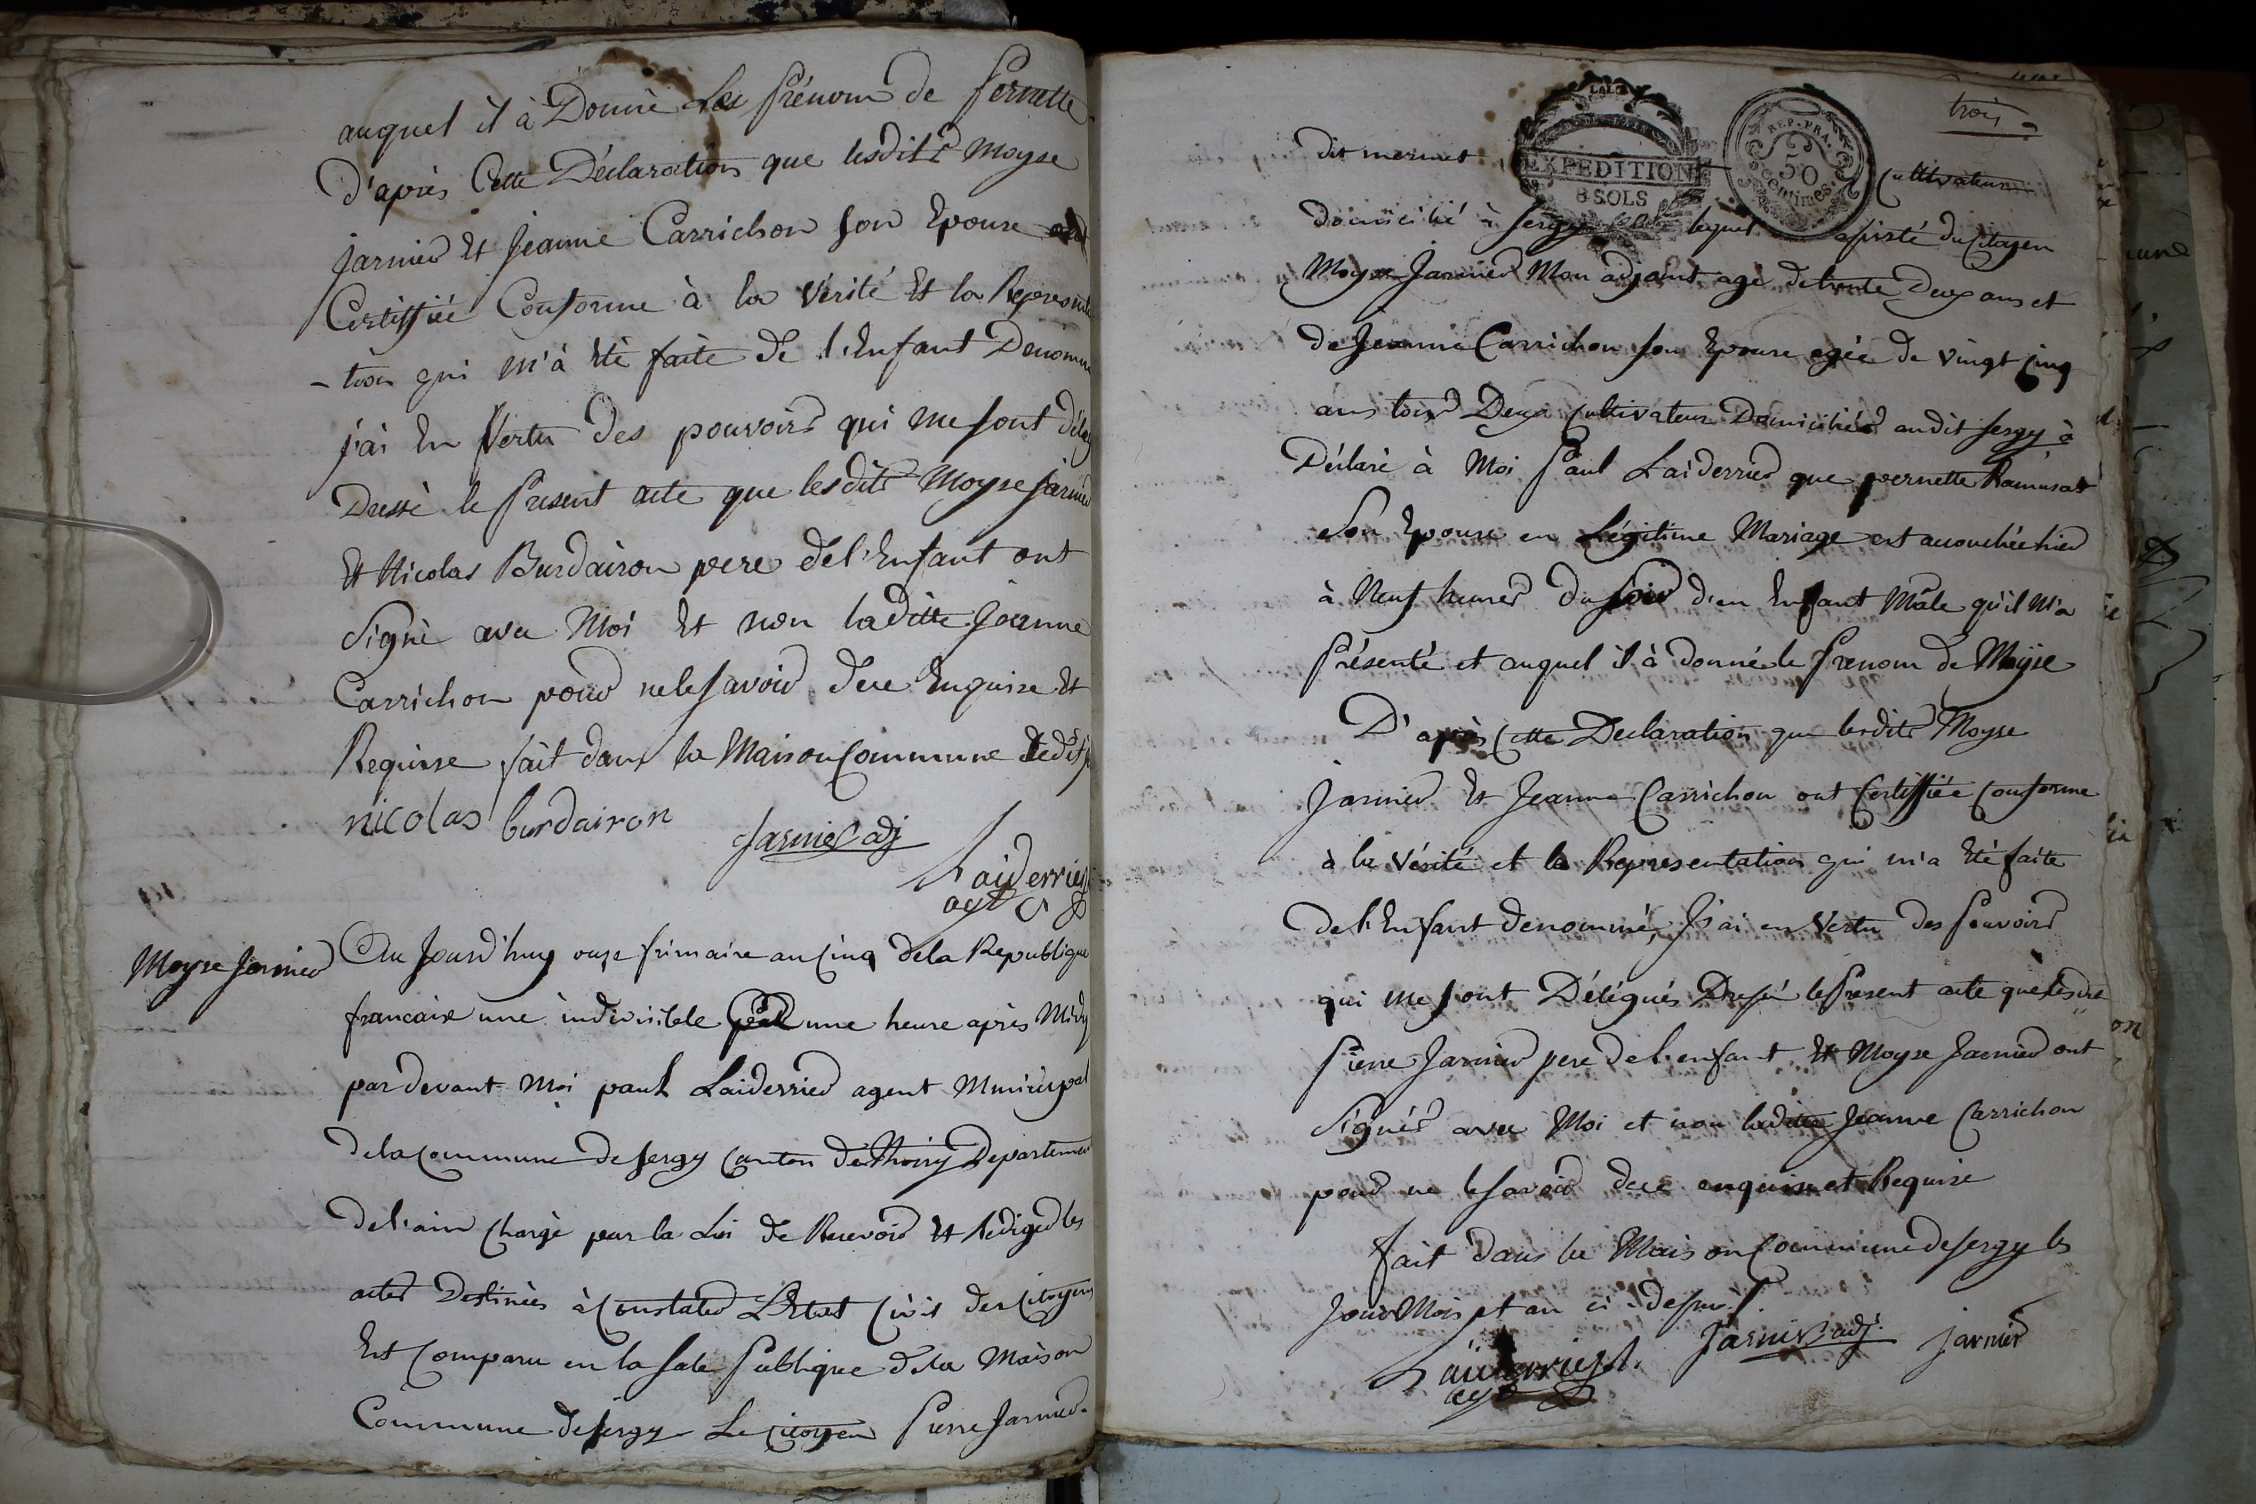 auquel il à Donné Les Prénom de Pernette
D'après Cette Déclaration que lesdits Moyse
Jarnier Et Jeanne Carrichon son Epouse ont
Certiffiée Conforme à la Vérité Et la Représenta
-tion qui m'à été faite de l'Enfant Dénommé
j'ai En Vertu des pouvoirs qui me sont délég
Dressé le Présent acte que lesdits Moyse Jarnier
Et Nicolas Burdairon pere de l'Enfant ont
Signé avec Moi Et non laditte Jeanne
Carrichon pour ne le savoir de ce Enquise Et
Requise fait dans la Maison Commune dedit
nicolas burdairon
Jarnier adj
Laiderrier
agt
Moyse Jarnier
Au Jourd'huy onze frimaire an Cinq de la Republique
francaise une indivisible une heure après Midy
par devant Moi paul Laiderrier agent Municipal
de la Commune de Sergy Canton de Thoiry Departement
de l'ain Chargé par la Loi de Recevoir Et Rediger les
actes Destinées à Constater L'Etat Civil des Citoyens
Est Comparu en la Sale Publique de la Maison
Commune de Sergy Le Citoyen Pierre Jarnier
trois
LALOI
EXPEDITION
8 SOLS
REP. FRA.
50
centimes
dit mermet Cultivateur
domicilié à Sergy lequel assisté du Citoyen
Moyse Jarnier Mon adjoint agé de trente Deux ans et
de Jeanne Carrichon son Epouse agée de vingt Cinq
ans tous Deux Cultivateurs Domiciliés audit Sergy à
Déclaré à Moi Paul Laiderrier que pernette Ramusat
Son Epouse en Légitime Mariage est accouchée hier
à Neuf heures du soir d'un Enfant Mâle qu'il m'a
Présenté et auquel il à donné le Prenom de Moyse
D'après Cette Declaration que lesdits Moyse
Jarnier Et Jeanne Carrichon ont Certiffiée Conforme
à la Vérité et la Representation qui m'a Eté faite
de l'Enfant denommé, J'ai en Vertu des Pouvoirs
qui me sont Délégués Dressé le Present acte que
Pierre Jarnier pere de l'enfant Et Moyse Jarnier ont
Signés avec Moi et non laditte Jeanne Carrichon
pour ne le savoir de ce enquise et Requise
fait dans la Maison Commune de Sergy les
Jour Mois et an ci-dessus
Laiderrier
agt
Jarnier adj.
jarnier